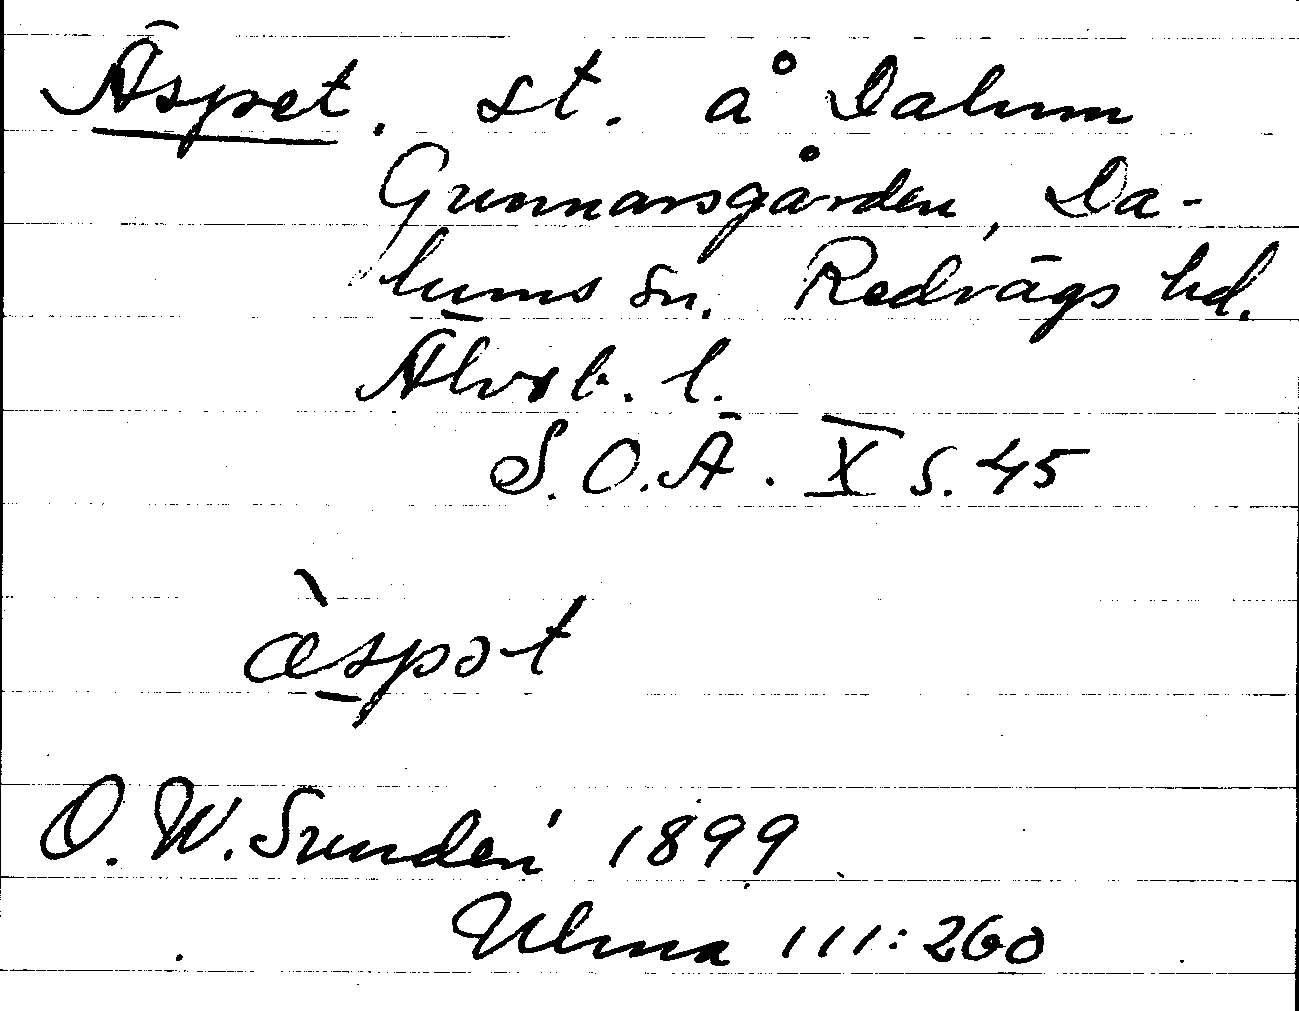 Äspet. st. å Dalum
Gunnarsgården, Da-
lums sn. Redvägs hd.
Älvsb. l.
S.O.Ä. X s. 45
æ̀spət
O. W. Svendén 1899
Ulma 111:260